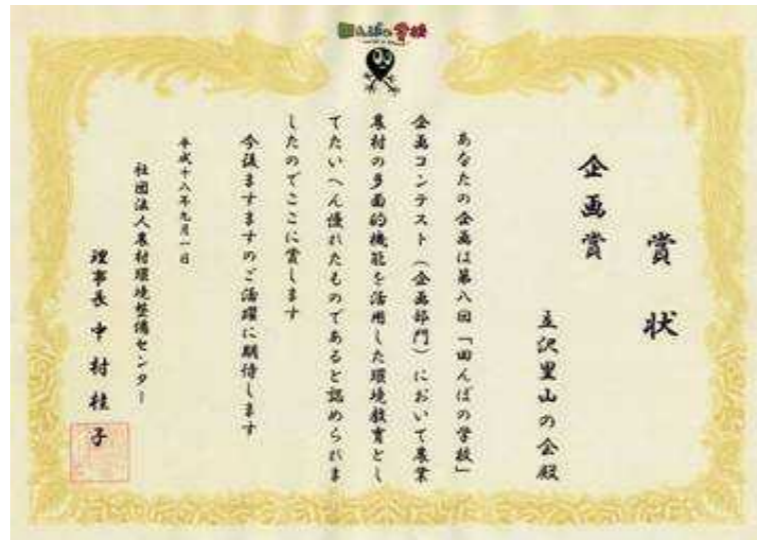 田んぼの学校
賞状
企画賞
立沢里山の会殿
あなたの企画は第八回「田んぼの学校」
企画コンテスト（企画部門）において農業
農村の多面的機能を活用した環境教育とし
てたいへん優れたものであると認められま
したのでここに賞します
今後ますますのご活躍に期待します
平成十八年九月一日
社団法人農村環境整備センター
理事長 中村桂子